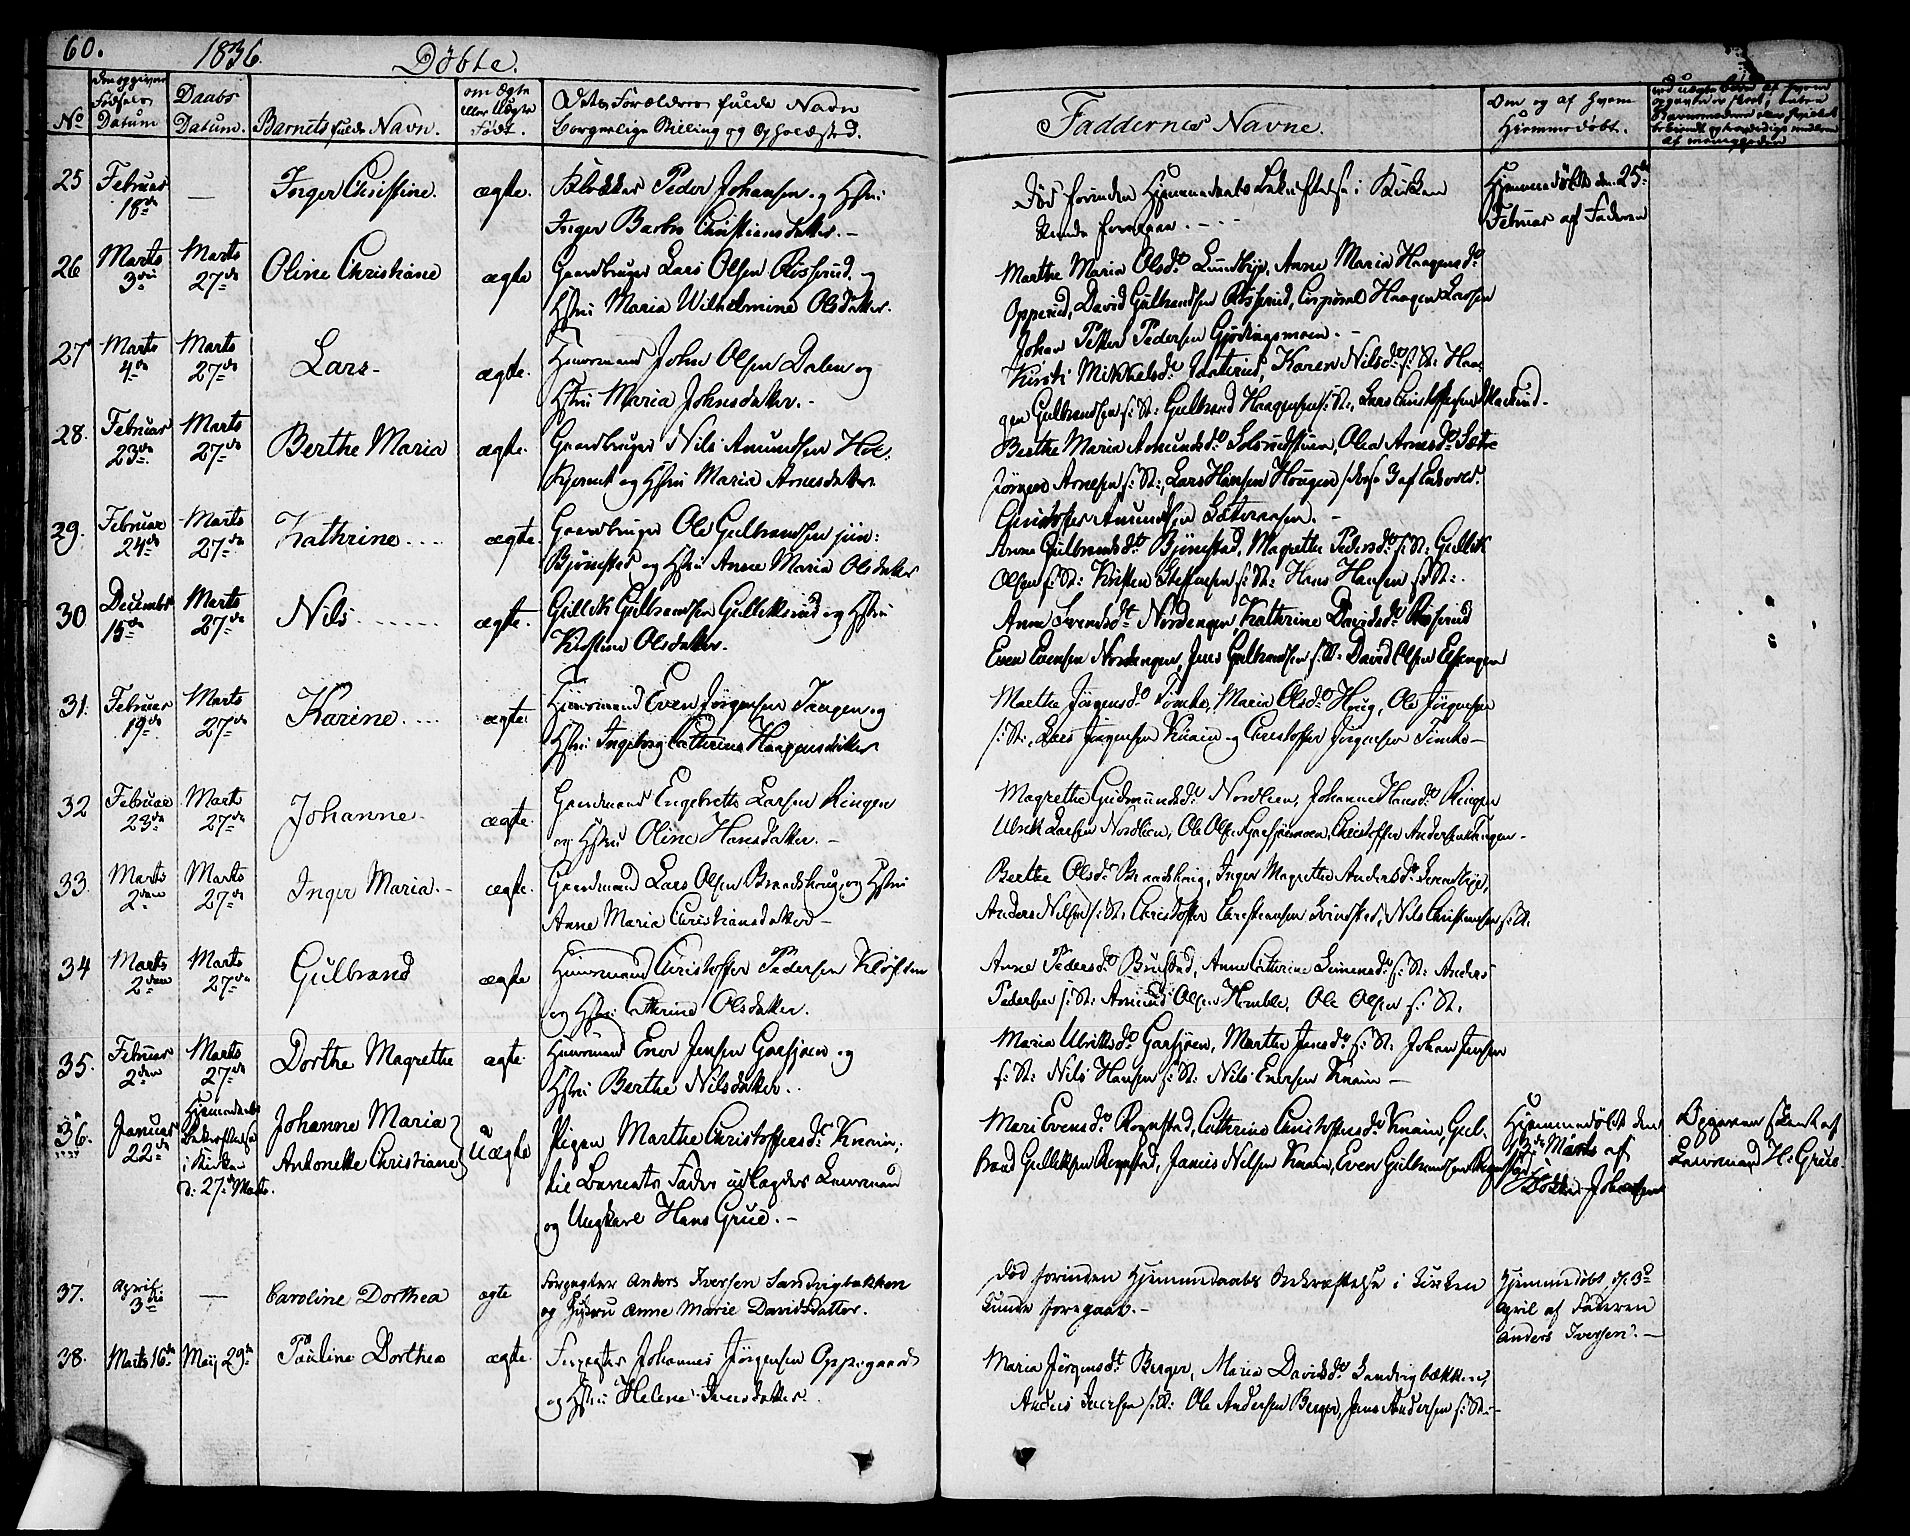 60. 1836. Döbte.
No
den opgivne Födsels Datum
Daabs Datum.
Barnets fulde Navn.
om Ægte eller Uægte Födt.
Dets Forældres fulde Navn
borgerlige Stilling og Opholdsted.
Faddernes Navne.
Om og af hvem
Hjemmedöbt.
25 Februar 18de — Inger Christine. ægte. Klokker Peder Johansen og Hstru
Inger Barbro Christiansdatter.—
Död forinden Hjemmedaabs Bekræftelse i Kirken
kunde foregaae.
Hjemmedöbt den 25de
Februar af Faderen
26 Marts 3die Marts 27de Oline Christiane ægte Gaardbruger Lars Olsen Risserud og
Hstru Maria Wilhelmine Olsdatter.
Marthe Maria Olsdt. Lundbye, Anne Maria Haagensdt.
Opperud, David Gulbrandsen Risserud, Corporal Haagen Larsen
Johan Petter Pedersen Gjödingsmoen.—
27 Marts 4de Marts 27de Lars ægte. Huusmand John Olsen Dalen og
Hstru Maria Johnsdatter.—
Kirsti Mikkelsdt. Karen Nilsdt. s: St: Haa-
gen Gulbrandsen s: St: Gulbrand Haagensen s: St:, Lars Christoffersen
28. Februar 23de Marts 27de Berthe Maria ægte. Gaardbruger Nils Amundsen Hol-
og Hstru Maria Arnesdatter.
Berthe Maria Amundsdt. Olea Arnesdt. Sætre
Jörgen Arnesen s: St:, Lars Hansen Haugen disse 3 af Eidsvold.
Christoffer Amundsen
29. Februar 24de Marts 27de Kathrine ægte. Gaardbruger Ole Gulbrandsen jun:
Björnstad og Hstru Anne Maria Olsdatter
Anne Gulbrandsdt. Björnstad, Magrethe Pedersdt. s: St: Gullik
Olsen s: St: Kristen Steffensen s: St: Hans Hansen s: St:
30 Decembr 15de Marts 27de Nils ægte. Gullik Gulbrandsen Gulliksrud og Hstru
Kirstine Olsdatter.
Anne Svendsdt. Nordengen, Kathrine Davidsdt. Risserud
Even Evensen Nordengen, Jens Gulbrandsen s: St: David Olsen
31. Februar 19de Marts 27de Karine. ægte. Huusmand Even Jörgensen Tangen og
Hstru Ingeborg Cathrine Haagensdatter
Marthe Jörgensdt. Tömte, Maria Olsdt. Haug, Ole Jörgensen
s: St:, Lars Jörgensen Knain og Christoffer Jörgensen Tömte—
32 Februar 23de Marts 27de Johanne. ægte. Gaardmand Engebreth Larsen Ringen
og Hstru Oline Hansdatter.—
Magrethe Gudmundsdt. Nordlien, Johanne Hansdt. Ringen
Ulrik Larsen Nordlien, Ole Olsen Garsjömoen, Christoffer Andersen Tangen.
33. Marts 2den Marts 27de Inger Maria.— ægte. Gaardmand Lars Olsen Brandshoug, og Hstru
Anne Maria Christiansdatter—
Berthe Olsdt. Brandshoug, Inger Magrethe Andersdt.
Anders Nilsen s: St: Christoffer Christiansen Nils Christiansen s: St.
34 Marts 2den Marts 27de Gulbrand ægte Huusmand Christoffer Pedersen Klöften
og Hstru Cathrine Olsdatter.
Anne Pedersdt. Bustad, Anne Cathrine Simensdt. s: St: Anders
Pedersen s: St: Amund Olsen Homble, Ole Olsen s: St.
35. Februar 2den Marts 27de Dorthe Magrethe ægte. Huusmand Ener Jensen Garsjöen og
Hstru Berthe Nilsdatter.
Maria Ulriksdt. Garsjöen, Marthe Jensdt. s: St. Johan Jensen
s: St: Nils Hansen s: St: Nils Enersen Knain—
36. Januar 22de Hjemmedaabs Bekræftelse i Kirken d: 27de Marts. Johanne Maria Antonette Christiane Uægte Pigen Marthe Christoffersdt. Knain;
til Barnets Fader udlagdes Lensmand
og Ungkarl Hans Grue.—
Mari Evensdt. Rognstad, Cathrine Christoffersdt. Knain, Gul-
brand Gulliksen Rognstad, Janus Nilsen Knain, Even Gulbrandsen Rognstad
Hjemmedöbt den
Marts af
Klokker Johansen
Opgaven skeet af
Lensmand H: Grue.
37. April 3die — Caroline Dorthea ægte Forpagter Anders Iversen Sandvigbækken
og Hustru Anne Marie Davidsdatter.
Död forinden Hjemmedaabs Bekræftelse i Kirken
kunde foregaae.—
Hjemmedöbt d. 3die
April af Faderen
Anders Iversen.—
38. Marts 16de Maij 29de Pauline Dorthea ægte. Forpagter Johannes Jörgensen Oppegaard
og Hstru Helene Iversdatter.
Maria Jörgensdt. Berger, Maria Davidsdt. Sandvigbækken,
Anders Iversen s: St: Ole Andersen Berger, Jens Andersen s: St:—